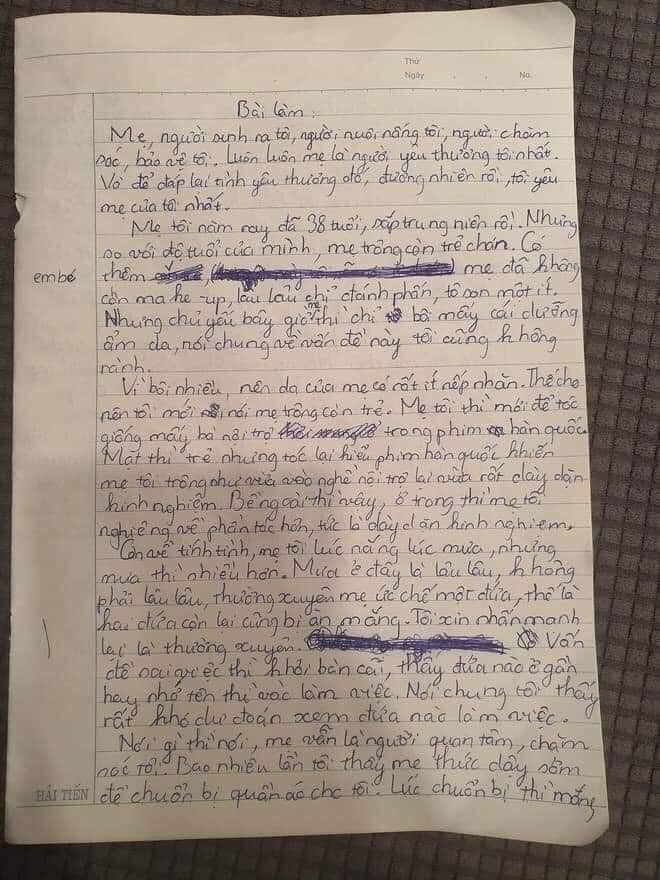 Thứ
Ngày . . No.
Bài làm:
Mẹ, người sinh ra tôi, người nuôi nấng tôi, người chăm
sóc, bảo vệ tôi. Luôn luôn mẹ là người yêu thương tôi nhất.
Và để đáp lại tình yêu thương đó, đương nhiên rồi, tôi yêu
mẹ của tôi nhất.
Mẹ tôi năm nay đã 38 tuổi, sắp trung niên rồi. Nhưng
so với độ tuổi của mình, mẹ trông còn trẻ chán. Có
em bé
thêm mẹ đã không
còn make-up, lâu lâu chỉ đánh phấn, tô son một ít.
Nhưng chủ yếu bây giờ mẹ thì chỉ bôi mấy cái dưỡng
ẩm da, nói chung về vấn đề này tôi cũng không
rành.
Vì bôi nhiều, nên da của mẹ có rất ít nếp nhăn. Thế cho
nên tôi mới nói mẹ trông còn trẻ. Mẹ tôi thì mới để tóc
giống mấy bà nội trợ trong phim hàn quốc.
Mặt thì trẻ nhưng tóc lại kiểu phim hàn quốc khiến
mẹ tôi trông như vừa vào nghề nội trợ lại vừa rất dày dặn
kinh nghiệm. Bề ngoài thì vậy, ở trong thì mẹ tôi
nghiêng về phần tóc hơn, tức là dày dặn kinh nghiệm.
Còn về tính tình, mẹ tôi lúc nắng lúc mưa, nhưng
mưa thì nhiều hơn. Mưa ở đây là lâu lâu, không
phải lâu lâu, thường xuyên mẹ ức chế một đứa, thế là
hai đứa còn lại cũng bị ăn mắng. Tôi xin nhấn mạnh
lại là thường xuyên. Vấn
đề sai việc thì khỏi bàn cãi, thấy đứa nào ở gần
hay nhớ tên thì vác làm việc. Nói chung tôi thấy
rất khó dự đoán xem đứa nào làm việc.
Nói gì thì nói, mẹ vẫn là người quan tâm, chăm
sóc tôi. Bao nhiêu lần tôi thấy mẹ thức dậy sớm
HẢI TIẾN
để chuẩn bị quần áo cho tôi. Lúc chuẩn bị thì mắng